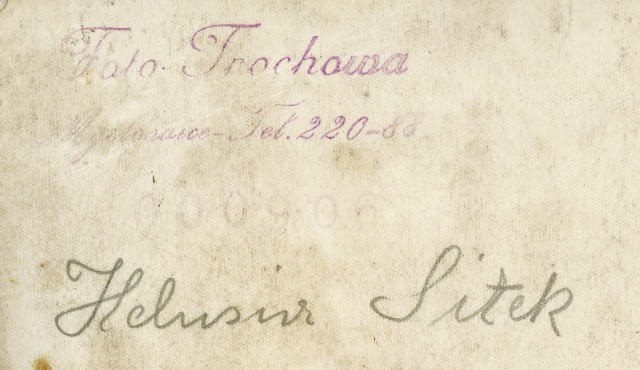 Foto Trochowa
Mysłowice-Tel. 220-88
000906
Helusiu Sitek